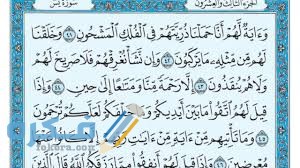 الجزء الثالث والعشرون
سورة يس
وَءَايَةٌ لَّهُمْ أَنَّا حَمَلْنَا ذُرِّيَّتَهُمْ فِي ٱلْفُلْكِ ٱلْمَشْحُونِ ٤١ وَخَلَقْنَا
لَهُم مِّن مِّثْلِهِۦ مَا يَرْكَبُونَ ٤٢ وَإِن نَّشَأْ نُغْرِقْهُمْ فَلَا صَرِيخَ لَهُمْ
وَلَا هُمْ يُنقَذُونَ ٤٣ إِلَّا رَحْمَةً مِّنَّا وَمَتَٰعًا إِلَىٰ حِينٍ ٤٤ وَإِذَا
قِيلَ لَهُمُ ٱتَّقُوا۟ مَا بَيْنَ أَيْدِيكُمْ وَمَا خَلْفَكُمْ لَعَلَّكُمْ تُرْحَمُونَ
٤٥ وَمَا تَأْتِيهِم مِّنْ ءَايَةٍ مِّنْ ءَايَٰتِ رَبِّهِمْ
مُعْرِضِينَ ٤٦ وَإِذَا قِيلَ لَهُمْ أَنفِقُوا۟ مِمَّا رَزَقَكُمُ ٱللَّهُ قَالَ ٱلَّذِينَ
fekera.com